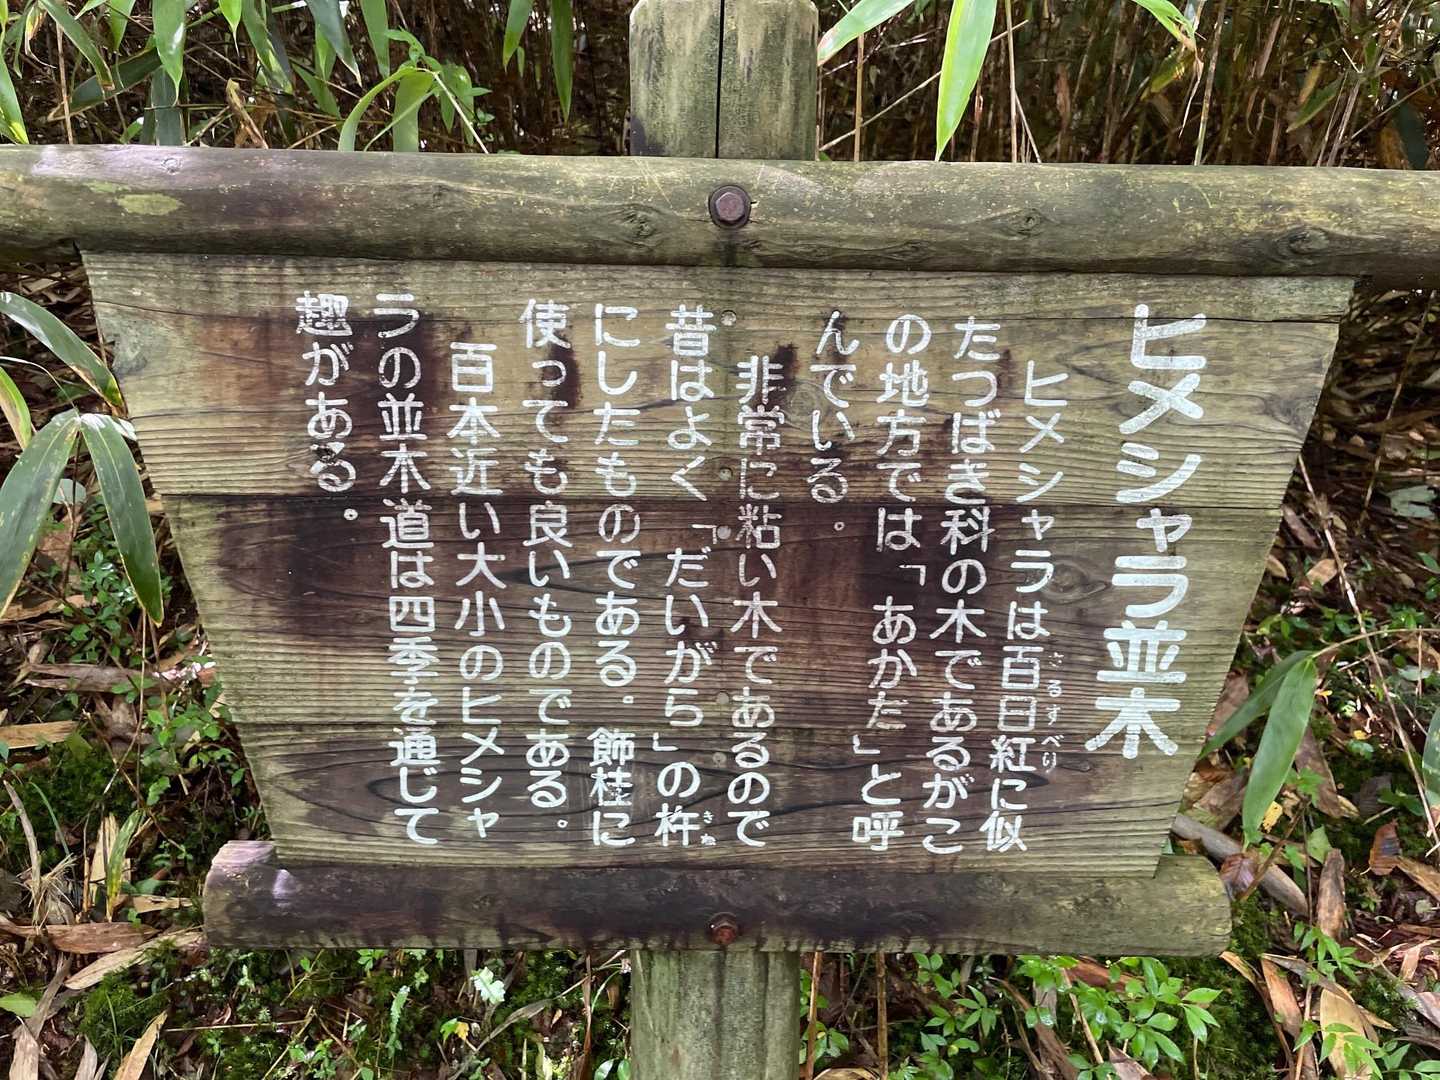 ヒメシャラ並木
ヒメシャラは百日紅に似
さるすべり
たつばき科の木であるがこ
の地方では「あかた」と呼
んでいる。
非常に粘い木であるので
昔はよく「だいがら」の杵
きね
にしたものである。飾桂に
使っても良いものである。
百本近い大小のヒメシャ
ラの並木道は四季を通じて
趣がある。